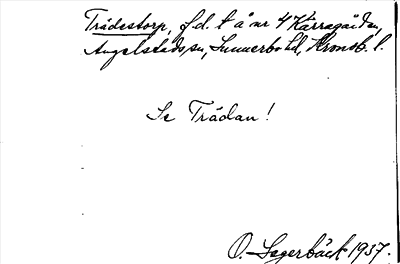 Trädestorp, f.d. t å nr 4 Kärragården,
Angelstads sn, Sunnerbo hd, Kronob. l.
Se Trädan!
O. Lagerbäck 1937.